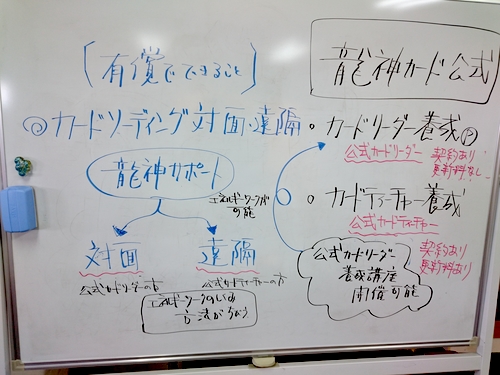 [有償でできること]
龍神カード公式
◎カードリーディング対面・遠隔
龍神サポート
エネルギーワークが
可能
対面
遠隔
公式カードリーダーの方
公式カードティーチャーの方
エネルギーワークのいみ
方法がちがう
・カードリーダー養成
公式カードリーダー
契約あり
更新料なし
・カードティーチャー養成
公式カードティーチャー
契約あり
更新料あり
公式カードリーダー
養成講座
開催可能